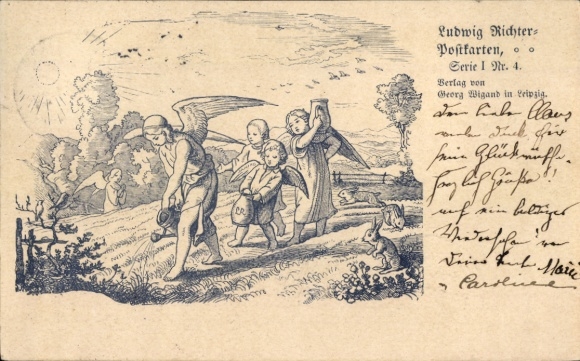 Ludwig Richter-
Postkarten,
Serie I Nr. 4.
Verlag von
Georg Wigand in Leipzig.
Dem lieben Claus
Dank für
seine Glückwünsche
herzlich Grüße!!
auf ein baldiges
Wiedersehen
Deine Marie
Caroline